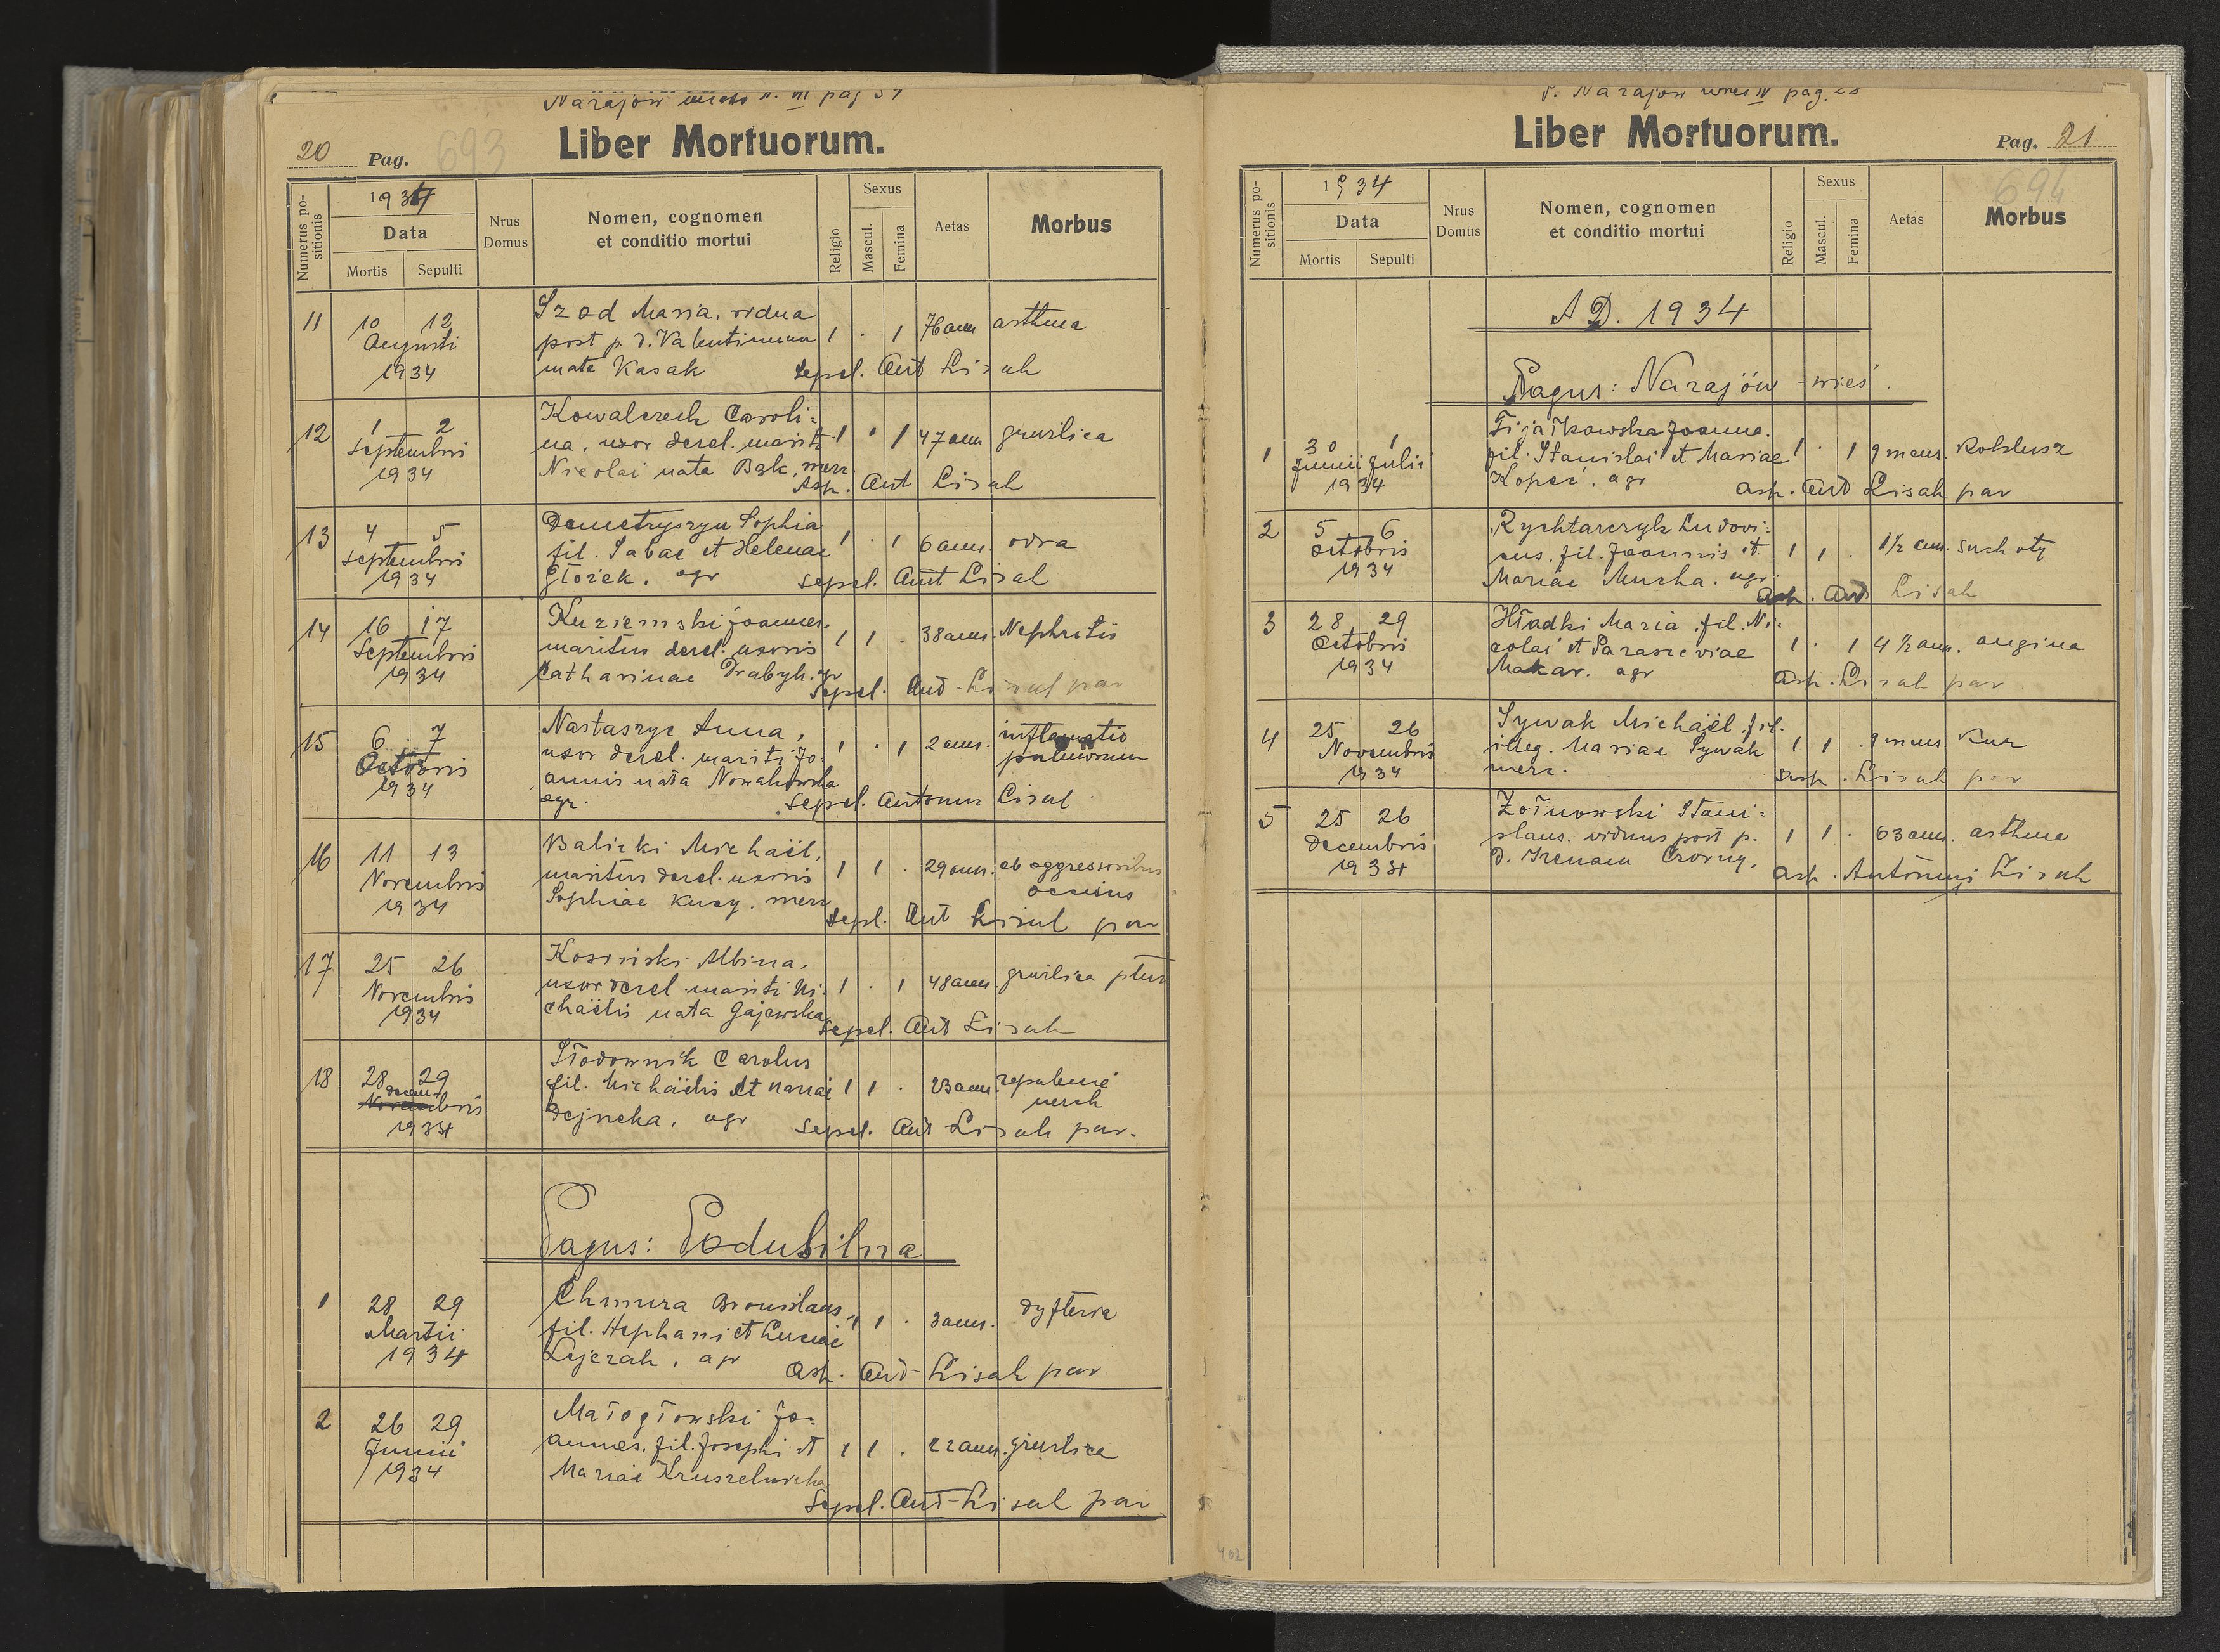 Narajów miasto
20 Pag. 693
Liber Mortuorum.
Numerus positionis
1934
Data
Mortis Sepulti
Nrus Domus
Nomen, cognomen
et conditio mortui
Religio
Sexus
Mascul. Femina
Aetas
Morbus
11 10 12 Augusti 1934
Szod Maria, vidua
post p. d. Valentinum 1 · 1 76 ann asthma
nata Kasak sepel. Ant Lisak
12 1 2 Septembris 1934
Kowalczuk Caroli=
na, uxor derel. mariti 1 · 1 47 ann gruźlica
Nicolai nata Bąk, merc.
Asp. Ant Lisak
13 4 5 Septembris 1934
Demetryszyn Sophia
fil. Sabae et Helenae 1 · 1 6 ann. odra
Głożek. agr sepel. Ant Lisak
14 16 17 Septembris 1934
Kuziemski Joannes,
maritus derel. uxoris 1 1 · 38 ann. Nephritis
Catharinae Drabyk. agr
Sepel. Ant. Lisak par
15 6 7 Octobris 1934
Nastaszyc Anna,
uxor derel. mariti Jo= 1 · 1 2 ann. inflamatio
annis nata Nowakowska pulmonum
agr. Sepel. Antonius Lisak
16 11 13 Novembris 1934
Balicki Michaël,
maritus derel. uxoris 1 1 · 29 ann. ab aggressoribus
Sophiae Kucy. merc occisus
Sepel. Ant Lisak par
17 25 26 Novembris 1934
Kosiński Albina,
uxor derel mariti Mi= 1 · 1 48 ann. gruźlica płuc
chaëlis nata Gajewska
Sepel. Ant Lisak
18 28 29 decem bris 1934
Słodownik Carolus
fil. Michaëlis et Mariae 1 1 · 23 ann. zapalenie
Dejneka, agr nerek
Sepel. Ant Lisak par.
Pagus: Podusilna
1 28 29 Martii 1934
Chmura Bronislaus,
fil. Stephani et Luciae 1 1 · 3 ann. dyfteria
Lejczak, agr Asp. Ant Lisak par
2 26 29 Junii 1934
Małogłowski Jo=
annes. fil. Josephi et 1 1 · 22 ann. gruźlica
Mariae Kruszelnicka
Sepel. Ant Lisak par
Narajów wieś IV pag. 28
Liber Mortuorum.
Pag. 21
694
Numerus positionis
1934
Data
Mortis Sepulti
Nrus Domus
Nomen, cognomen
et conditio mortui
Religio
Sexus
Mascul. Femina
Aetas
Morbus
A D. 1934
Pagus: Narajów - wieś.
1 30 1 Junii Julii 1934
Fijałkowska Joanna.
fil. Stanislai et Mariae 1 · 1 9 mens. Koklusz
Kopeć, agr Asp. Ant Lisak par
2 5 6 Octobris 1934
Rychtarczyk Ludovi=
cus. fil. Joannis et 1 1 · 1½ ann. suchoty
Mariae Mucha. agr.
Asp. Ant Lisak
3 28 29 Octobris 1934
Hładki Maria. fil. Ni=
colai et Parasceviae 1 · 1 4½ ann. angina
Makar. agr Asp. Lisak par
4 25 26 Novembris 1934
Sywak Michaël. fil.
illeg. Mariae Sywak 1 1 · 9 mens Kur
merc. Asp. Lisak par
5 25 26 Decembris 1934
Żołnowski Stani=
slaus. viduus post p. 1 1 · 63 ann. asthma
d. Irenam Czorny.
Asp. Antonius Lisak
402